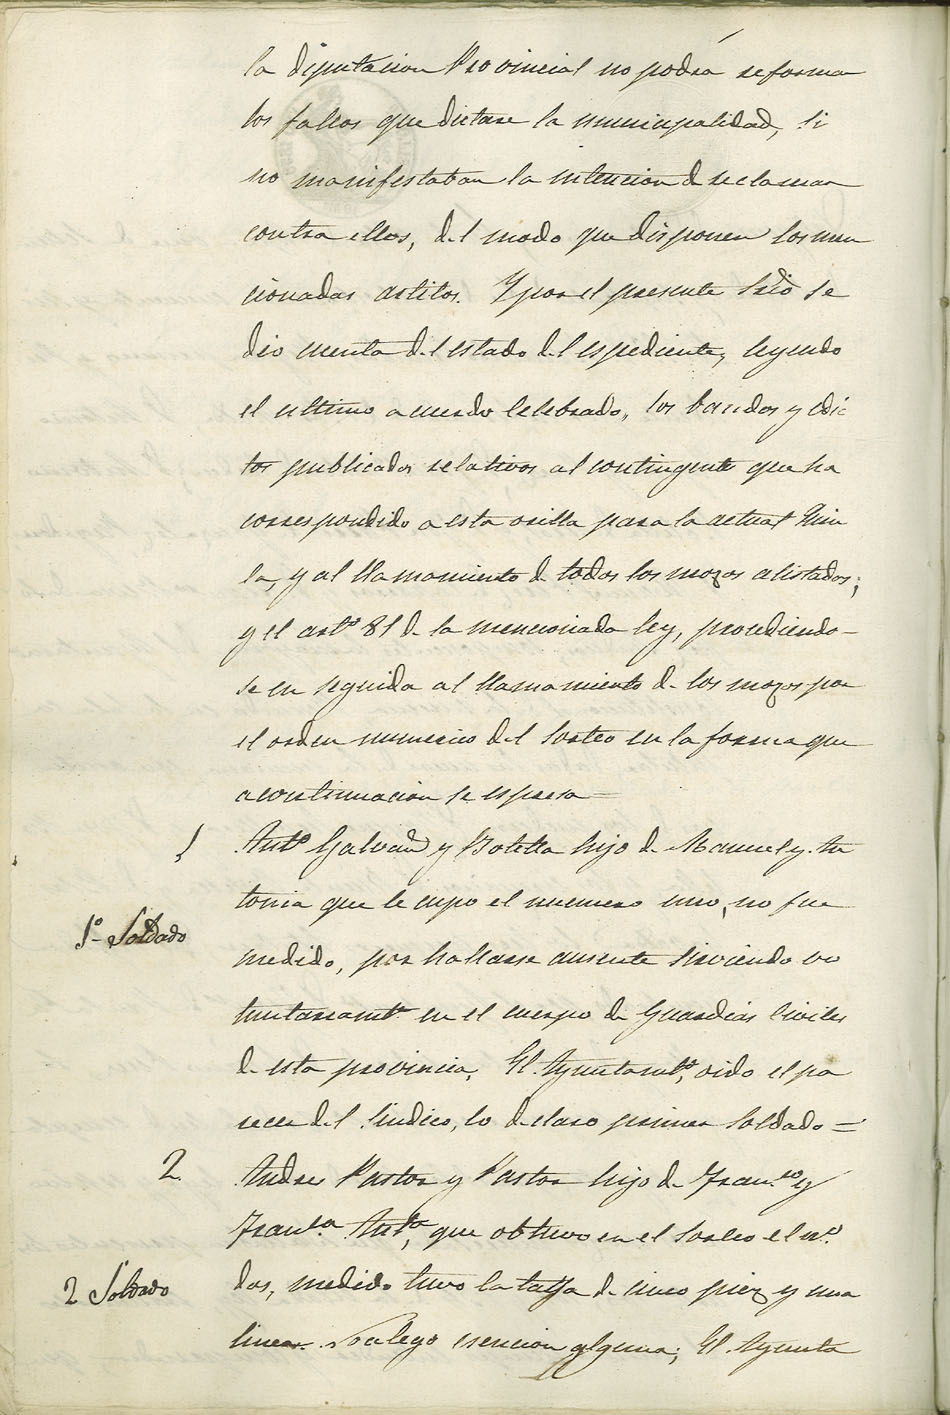 la diputacion Provincial no podrá reformar
los fallos que dictare la municipalidad, si
no manifestaban la intencion de reclamar
contra ellos, del modo que disponen los men
cionados artilos. Y por el presente Srio se
dio cuenta del estado del espediente, leyendo
el ultimo acuerdo celebrado, los bandos y edic
tos publicados relativos al contingente que ha
correspondido a esta villa para la actual Quin
ta, y al llamamiento de todos los mozos alistados;
y el arto. 81 de la mencionada ley, procediendo-
se en seguida al llamamiento de los mozos por
el orden numerico del sorteo en la forma que
a continuacion se espresa=
1 Anto. Galvañ y Botella hijo de Manuel y An
tonia que le cupo el numero uno, no fue
1o. Soldado medido, por hallarse ausente sirviendo vo
luntariamte. en el cuerpo de Guardias Civiles
de esta provincia. El Ayuntamto., oido el pa
recer del Sindico, lo declaro primer soldado=
2 Andres Pastor y Pastor hijo de Franco. y
Franca. Anta., que obtuvo en el sorteo el no.
2 Soldado dos, medido tuvo la talla de cinco piez y una
linea. No alego esencion alguna; El Ayunta